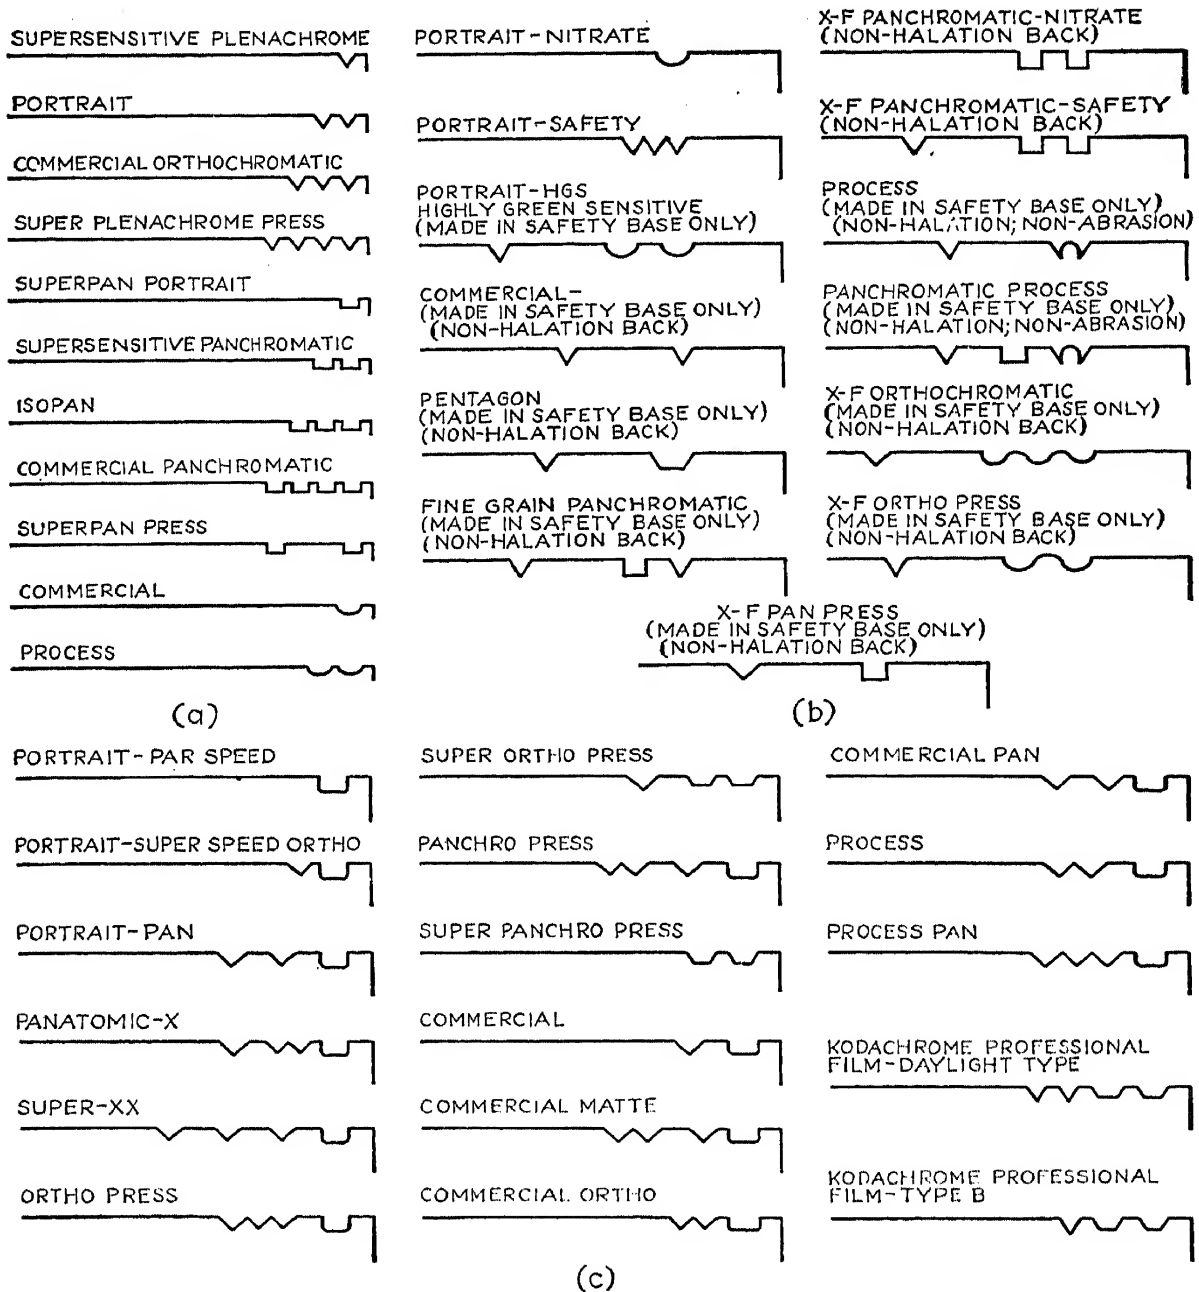 SUPERSENSITIVE PLENACHROME
PORTRAIT
COMMERCIAL ORTHOCHROMATIC
SUPER PLENACHROME PRESS
SUPERPAN PORTRAIT
SUPERSENSITIVE PANCHROMATIC
ISOPAN
COMMERCIAL PANCHROMATIC
SUPERPAN PRESS
COMMERCIAL
PROCESS
(a)
PORTRAIT-NITRATE
PORTRAIT-SAFETY
PORTRAIT-HGS
HIGHLY GREEN SENSITIVE
(MADE IN SAFETY BASE ONLY)
COMMERCIAL-
(MADE IN SAFETY BASE ONLY)
(NON-HALATION BACK)
PENTAGON
(MADE IN SAFETY BASE ONLY)
(NON-HALATION BACK)
FINE GRAIN PANCHROMATIC
(MADE IN SAFETY BASE ONLY)
(NON-HALATION BACK)
X-F PANCHROMATIC-NITRATE
(NON-HALATION BACK)
X-F PANCHROMATIC-SAFETY
(NON-HALATION BACK)
PROCESS
(MADE IN SAFETY BASE ONLY)
(NON-HALATION; NON-ABRASION)
PANCHROMATIC PROCESS
(MADE IN SAFETY BASE ONLY)
(NON-HALATION; NON-ABRASION)
X-F ORTHOCHROMATIC
(MADE IN SAFETY BASE ONLY)
(NON-HALATION BACK)
X-F ORTHO PRESS
(MADE IN SAFETY BASE ONLY)
(NON-HALATION BACK)
X-F PAN PRESS
(MADE IN SAFETY BASE ONLY)
(NON-HALATION BACK)
(b)
PORTRAIT-PAR SPEED
PORTRAIT-SUPER SPEED ORTHO
PORTRAIT-PAN
PANATOMIC-X
SUPER-XX
ORTHO PRESS
SUPER ORTHO PRESS
PANCHRO PRESS
SUPER PANCHRO PRESS
COMMERCIAL
COMMERCIAL MATTE
COMMERCIAL ORTHO
COMMERCIAL PAN
PROCESS
PROCESS PAN
KODACHROME PROFESSIONAL
FILM-DAYLIGHT TYPE
KODACHROME PROFESSIONAL
FILM-TYPE B
(c)